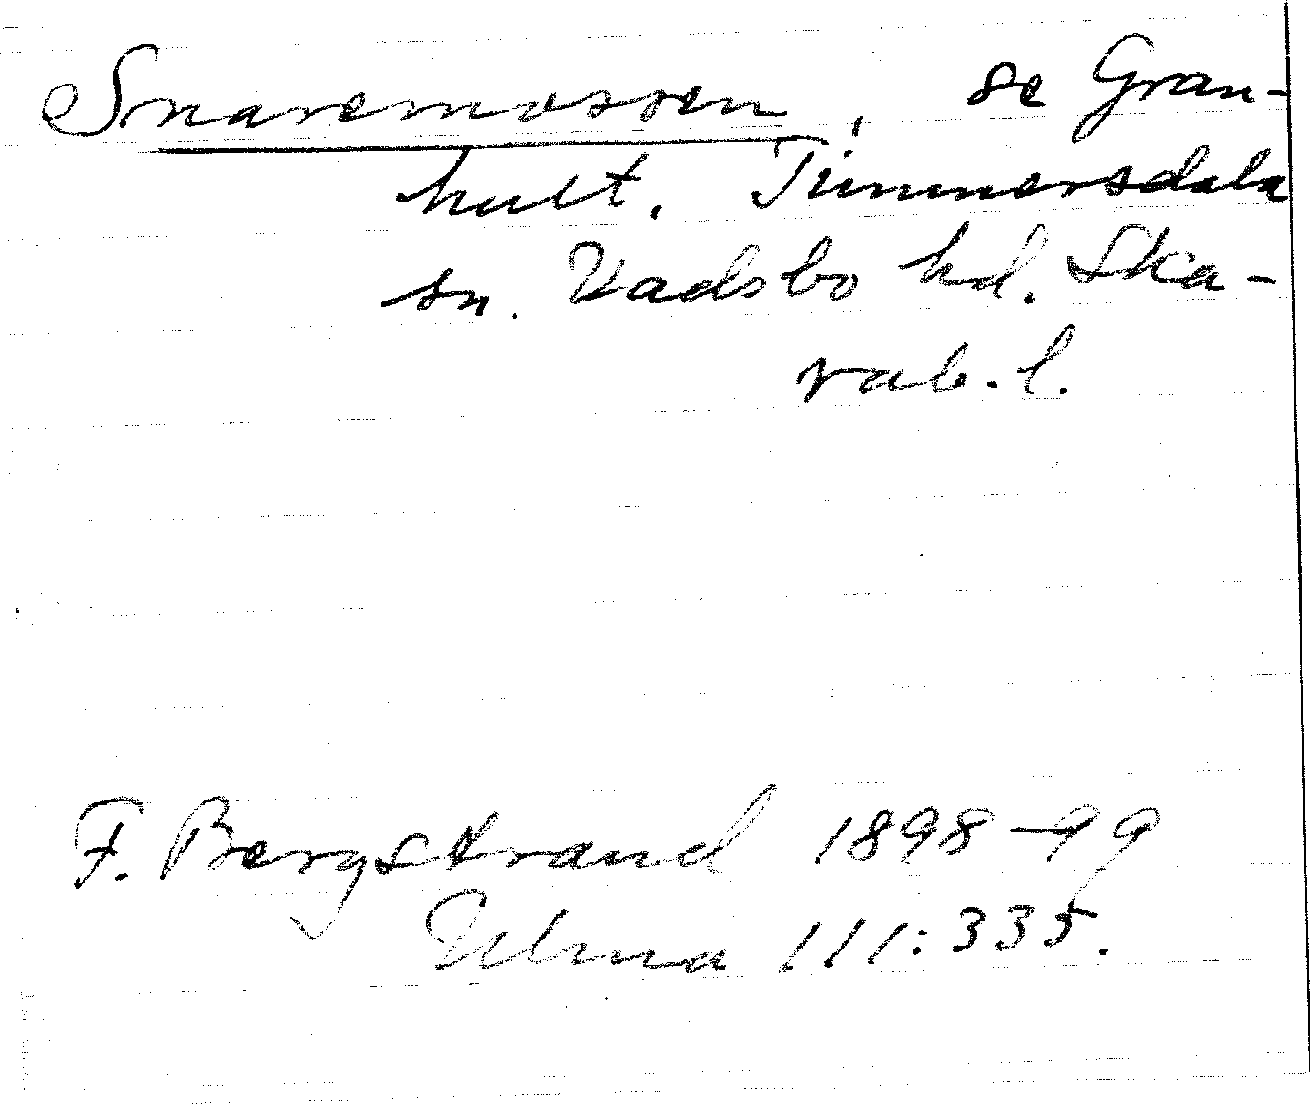 Snaremossen, se Gran-
hult. Timmersdala
sn. Vadsbo hd. Ska-
rab. l.
F. Bergstrand 1898-99
Ulma 111:335.